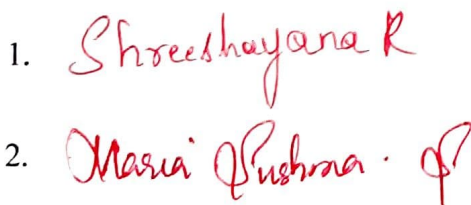 1. Shreeshayana R
2. Maria Pushpa . P